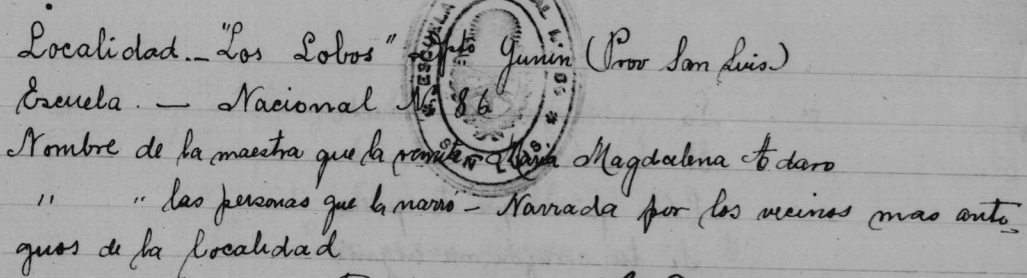 Localidad._ "Los Lobos" Dpto Junin (Prov San Luis)
Escuela. _ Nacional Nº 86
Nombre de la maestra que la remite María Magdalena Adaro
" " las personas que la narró _ Narrada por los vecinos mas anti_
guos de la localidad